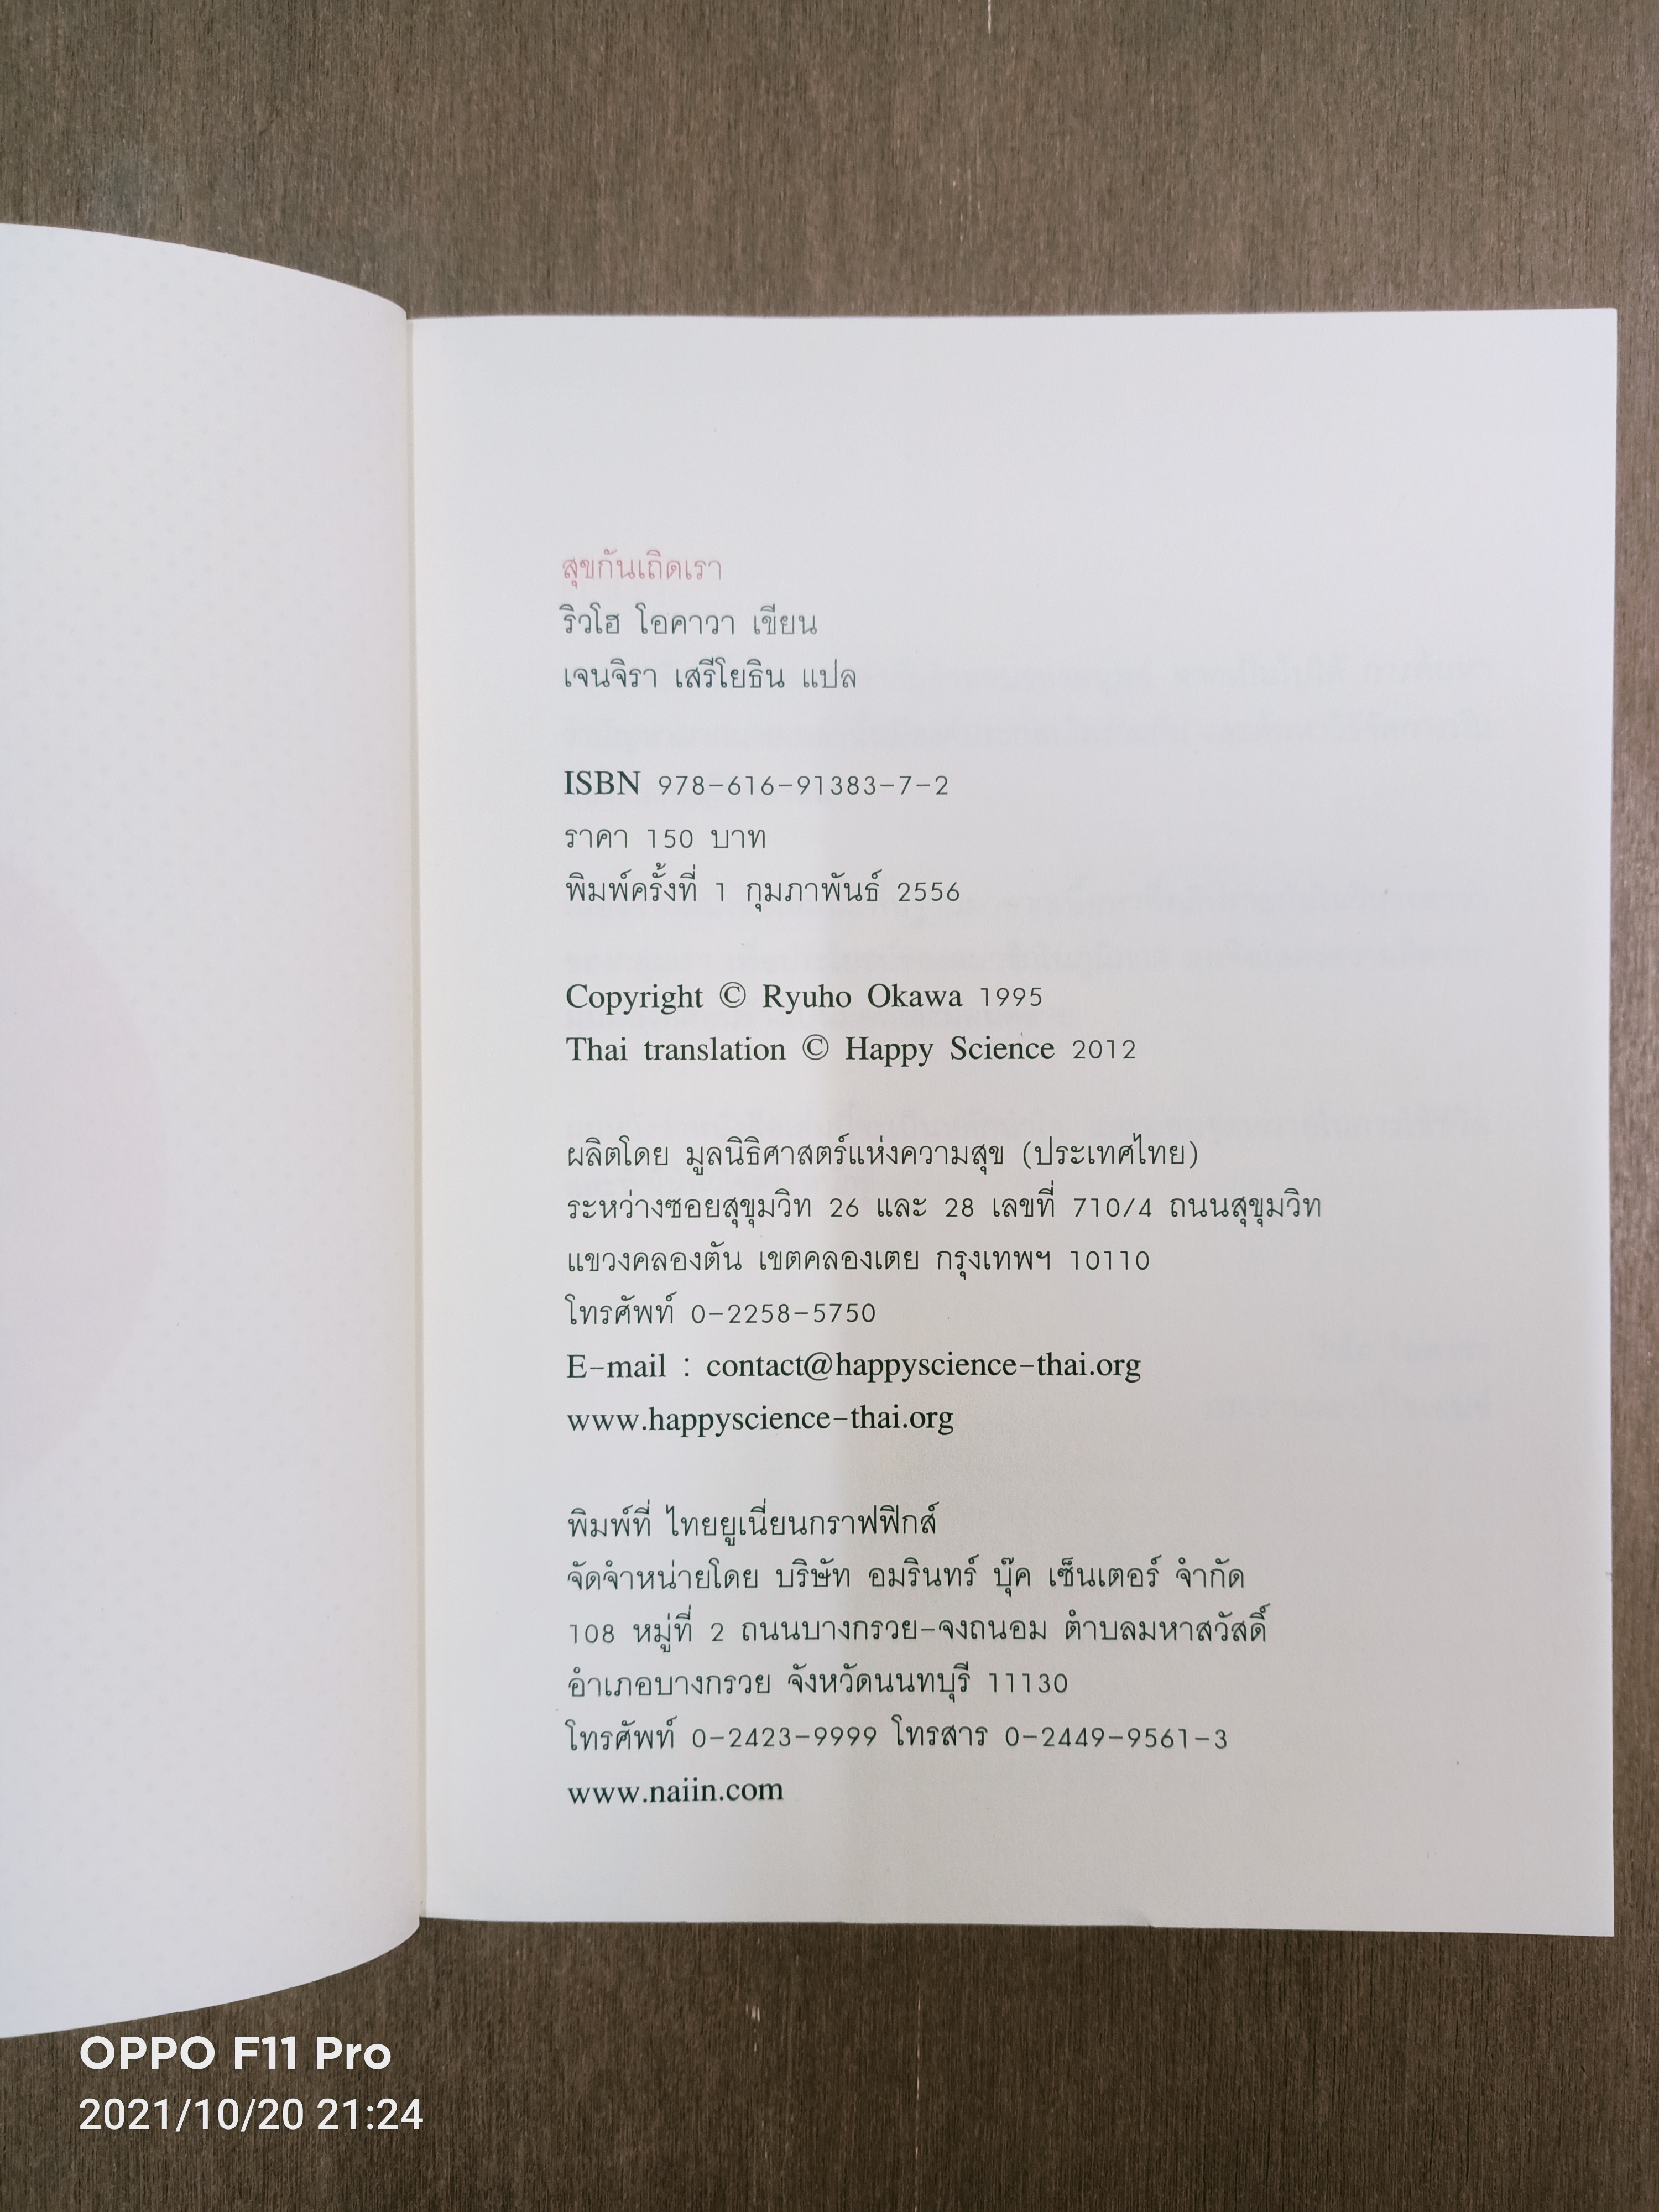 สุขกันเถิดเรา
ริวโฮ โอคาวา เขียน
เจนจิรา เสรีโยธิน แปล
ISBN 978-616-91383-7-2
ราคา 150 บาท
พิมพ์ครั้งที่ 1 กุมภาพันธ์ 2556
Copyright © Ryuho Okawa 1995
Thai translation © Happy Science 2012
ผลิตโดย มูลนิธิศาสตร์แห่งความสุข (ประเทศไทย)
ระหว่างซอยสุขุมวิท 26 และ 28 เลขที่ 710/4 ถนนสุขุมวิท
แขวงคลองตัน เขตคลองเตย กรุงเทพฯ 10110
โทรศัพท์ 0-2258-5750
E-mail : contact@happyscience-thai.org
www.happyscience-thai.org
พิมพ์ที่ ไทยยูเนี่ยนกราฟฟิกส์
จัดจำหน่ายโดย บริษัท อมรินทร์ บุ๊ค เซ็นเตอร์ จำกัด
108 หมู่ที่ 2 ถนนบางกรวย-จงถนอม ตำบลมหาสวัสดิ์
อำเภอบางกรวย จังหวัดนนทบุรี 11130
โทรศัพท์ 0-2423-9999 โทรสาร 0-2449-9561-3
www.naiin.com
OPPO F11 Pro
2021/10/20 21:24